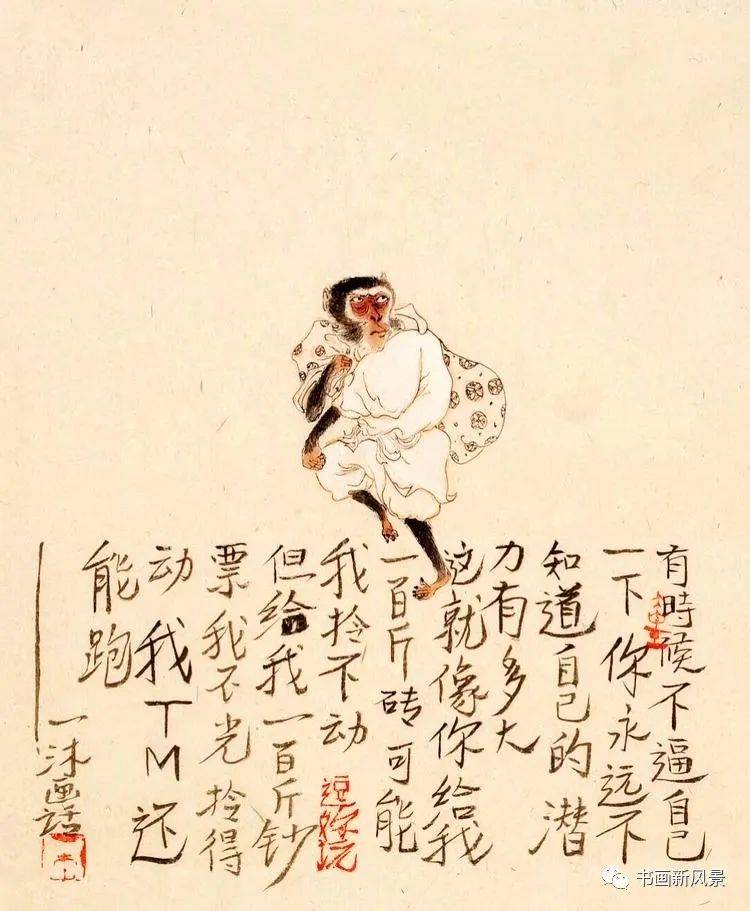 有時候不逼自己
一下你永远不
知道自己的潜
力有多大
这就像你给我
一百斤砖可能
我拎不动
但给我一百斤钞
票我不光拎得
动我TM还
能跑
一沐画话
书画新风景